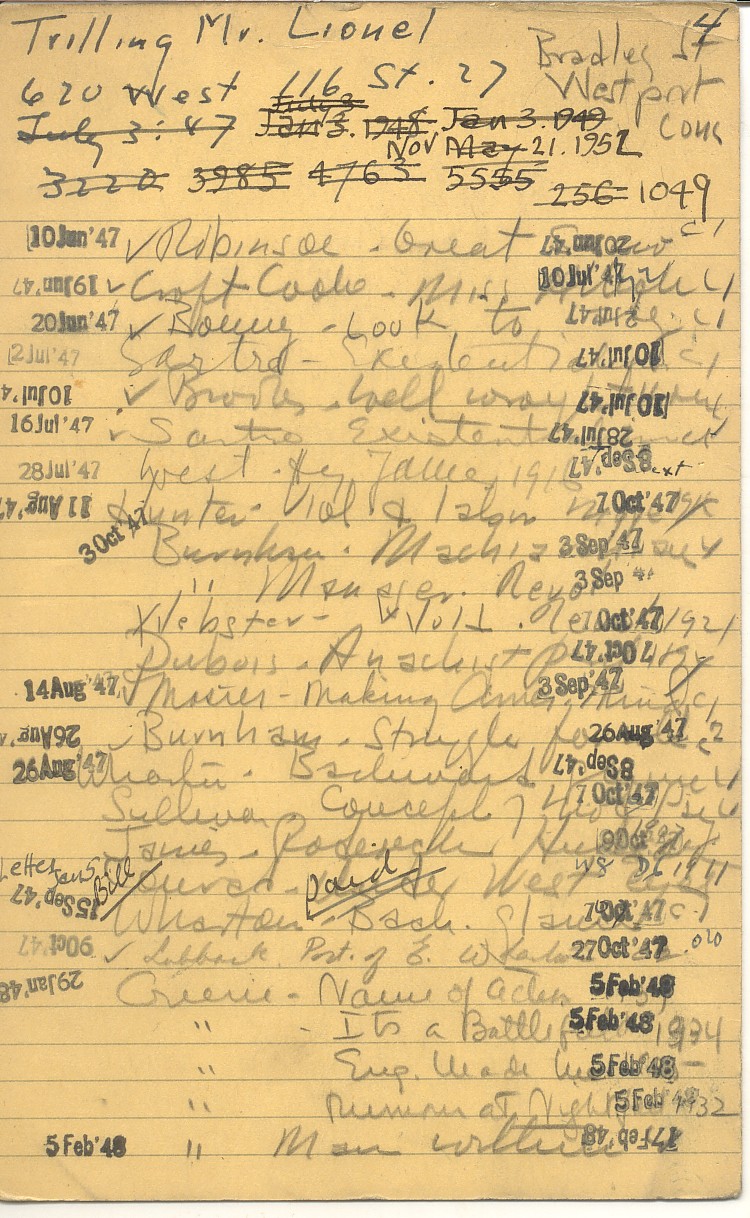 4
Trilling Mr. Lionel
Bradley St
620 West 116 St. 27 Westport
July 3
July 3:'47 Jan 3. 1948 Jan 3. 1949 Conn
Nov May 21. 1952
3220 3985 4763 5555 256 1049
10 Jun '47 Robinson - Great 20 Jun '47 c1
19 Jun '47 Croft Cooke - Miss 10 Jul '47 c1
20 Jun '47 - Look to 2 Jul '47 c1
2 Jul '47 Sartre - Existentialism 10 Jul '47 c1
10 Jul '4 Brooks - Well 10 Jul '47
16 Jul '47 Sartre Existent 28 Jul '47
28 Jul '47 West - Hy James, 1916 8 Sep '47 ext
11 Aug '47 Hunter - Viol & Labor 7 Oct '47
3 Oct '47 Burnham - Machia 3 Sep '47
" Manager. Revo 3 Sep '4
Webster - World Rev Oct '47 1921
Dubois - Anarchist 7 Oct '47
14 Aug '47 Mosier - Making Amer. Mind 3 Sep '47 c1
26 Aug '4 Burnham - Struggle for 26 Aug '47 c2
26 Aug '47 Wharton - Backward 8 Sep '47
Sullivan Concept 7 Oct '47
James - Roderick Hudson 9 Oct
Letter Jan 5 W8 D6 1911
15 Sep '47 Bill Paid West Eyes
Wharton - Back. Glance 7 Oct '47 c1
9 Oct '47 Lubbock Port. of E. Wharton 27 Oct '47 .020
29 Jan '48 Greene - Name of Action 5 Feb '48
" - Its a Battlefield 5 Feb '48 1934
" Eng. Made Me 5 Feb '48
" Rumour at Nightfall 5 Feb '48 1932
5 Feb '48 " Man within 17 Feb '48